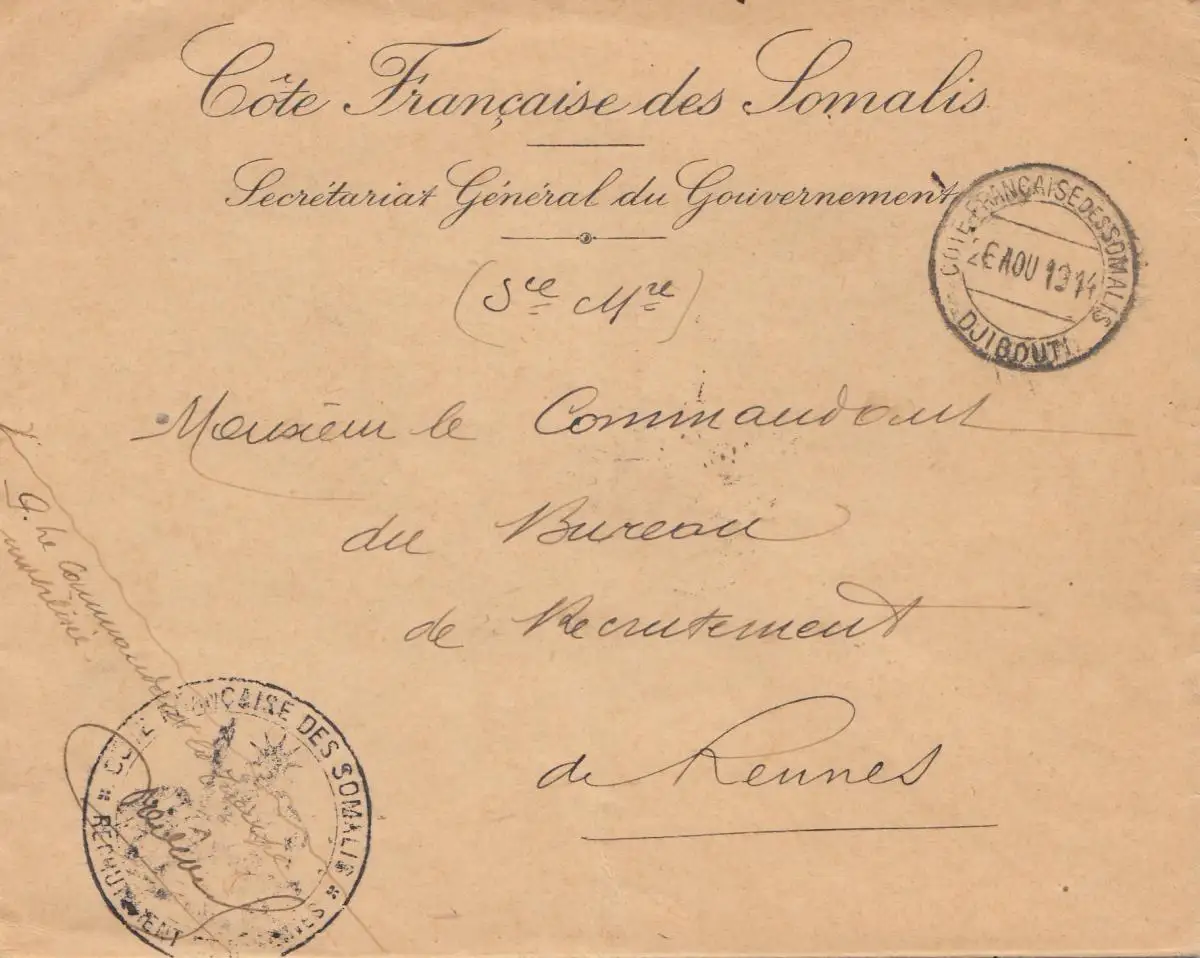 Côte Française des Somalis
Secrétariat Général du Gouvernement
CÔTE FRANÇAISE DES SOMALIS
26 AOU 1914
DJIBOUTI
(Sce Mre)
Monsieur le Commandant
du Bureau
de Recrutement
de Rennes
Le Commandant
CÔTE FRANÇAISE DES SOMALIS
RECRUTEMENT